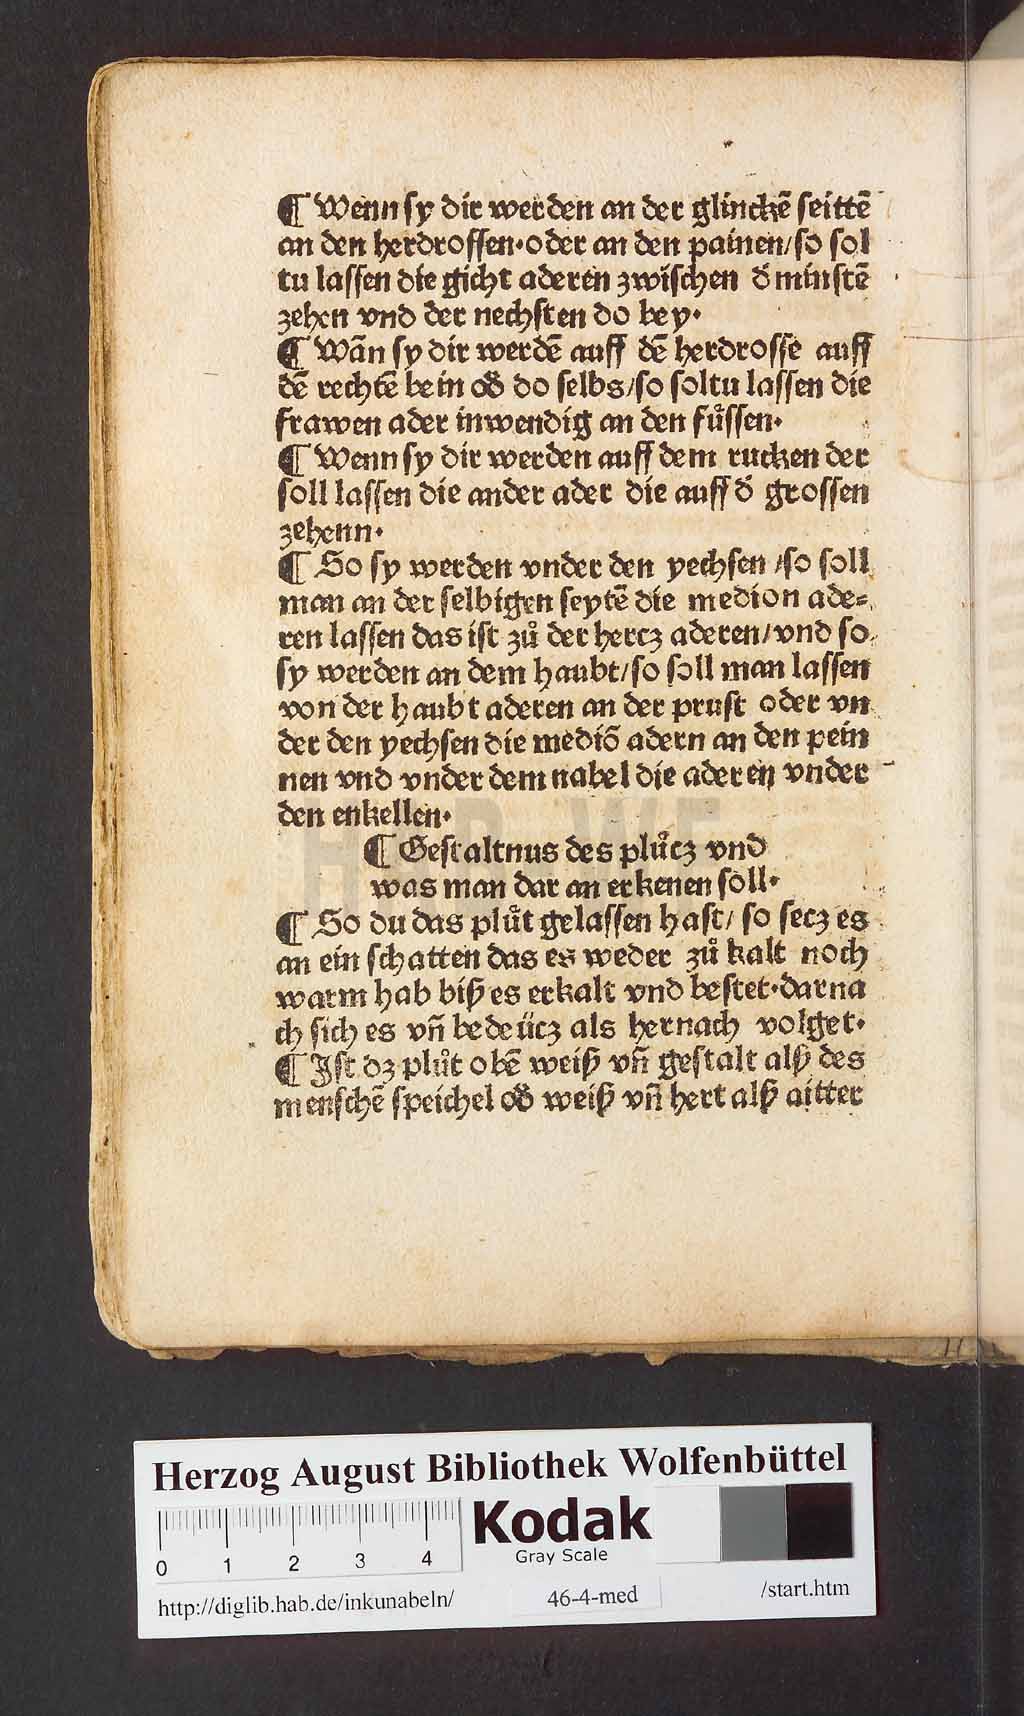 ¶ Wenn sy dir werden an der glinckē seittē
an den herdroſſen·oder an den painen/so sol
tu laſſen die gicht aderen zwiſchen d̓ minſtē
zehen vnd der nechſten do bey·
¶ Wān sy dir werdē auff dē herdroſſē auff
dē rechtē bein od̓ do ſelbs/so soltu laſſen die
frawen ader inwendig an den fuͤſſen·
¶ Wenn sy dir werden auff dem rucken der
soll laſſen die ander ader die auff d̓ groſſen
zehenn·
¶ So sy werden vnder den yechſen /so soll
man an der ſelbigen ſeytē die medion ade⸗
ren laſſen das iſt zuͦ der hercz aderen/vnd so
sy werden an dem haubt/so soll man laſſen
von der haubt aderen an der pruſt oder vn
der den yechſen die mediō adern an den pein
nen vnd vnder dem nabel die aderen vnder
den enkellen·
¶ Geſtaltnus des pluͦcz vnd
was man dar an erkenen soll·
¶ So du das pluͦt gelaſſen haſt/ so secz es
an ein ſchatten das es weder zuͦ kalt noch
warm hab biß es erkalt vnd beſtet·darna
ch ſich es vn̄ bedeücz als hernach volget·
¶ Iſt dz pluͦt obē weiß vn̄ geſtalt alß des
menſchē ſpeichel od̓ weiß vn̄ hert alß aitter
HAB WF
Herzog August Bibliothek Wolfenbüttel
Kodak
Gray Scale
0 1 2 3 4
http://diglib.hab.de/inkunabeln/ 46-4-med /start.htm